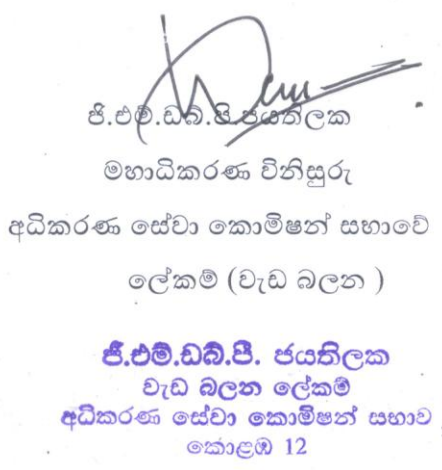 ජී.එම්.ඩබ්.පී.ජයතිලක
මහාධිකරණ විනිසුරු
අධිකරණ සේවා කොමිෂන් සභාවේ
ලේකම් (වැඩ බලන )
ජී.එම්.ඩබ්.පී. ජයතිලක
වැඩ බලන ලේකම්
අධිකරණ සේවා කොමිෂන් සභාව
කොළඹ 12